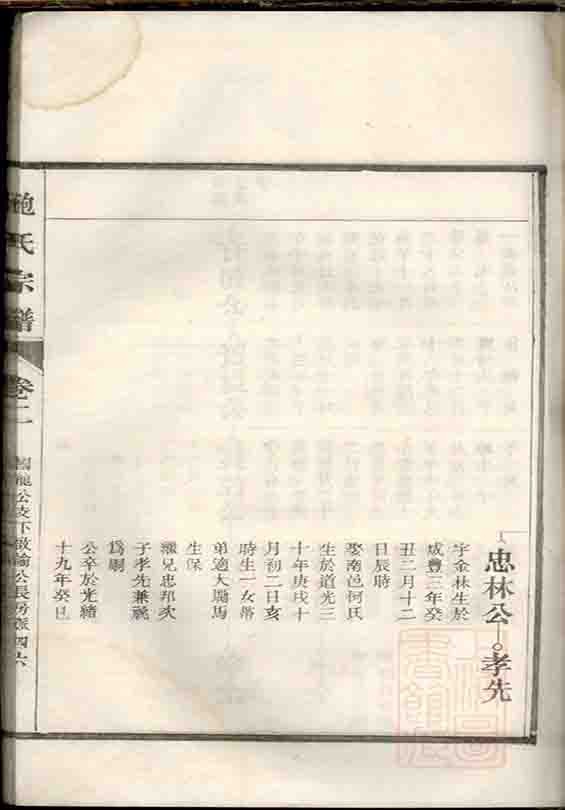 忠林公—○孝先
字金林生於
咸豐三年癸
丑二月十二
日辰時
娶南邑柯氏
生於道光三
十年庚戌十
月初二日亥
時生一女蒂
弟適大勝馬
生保
繼兄忠邦次
子孝先兼祧
為嗣
公卒於光緒
十九年癸巳
鮑氏宗譜
卷二
公長房 四十六